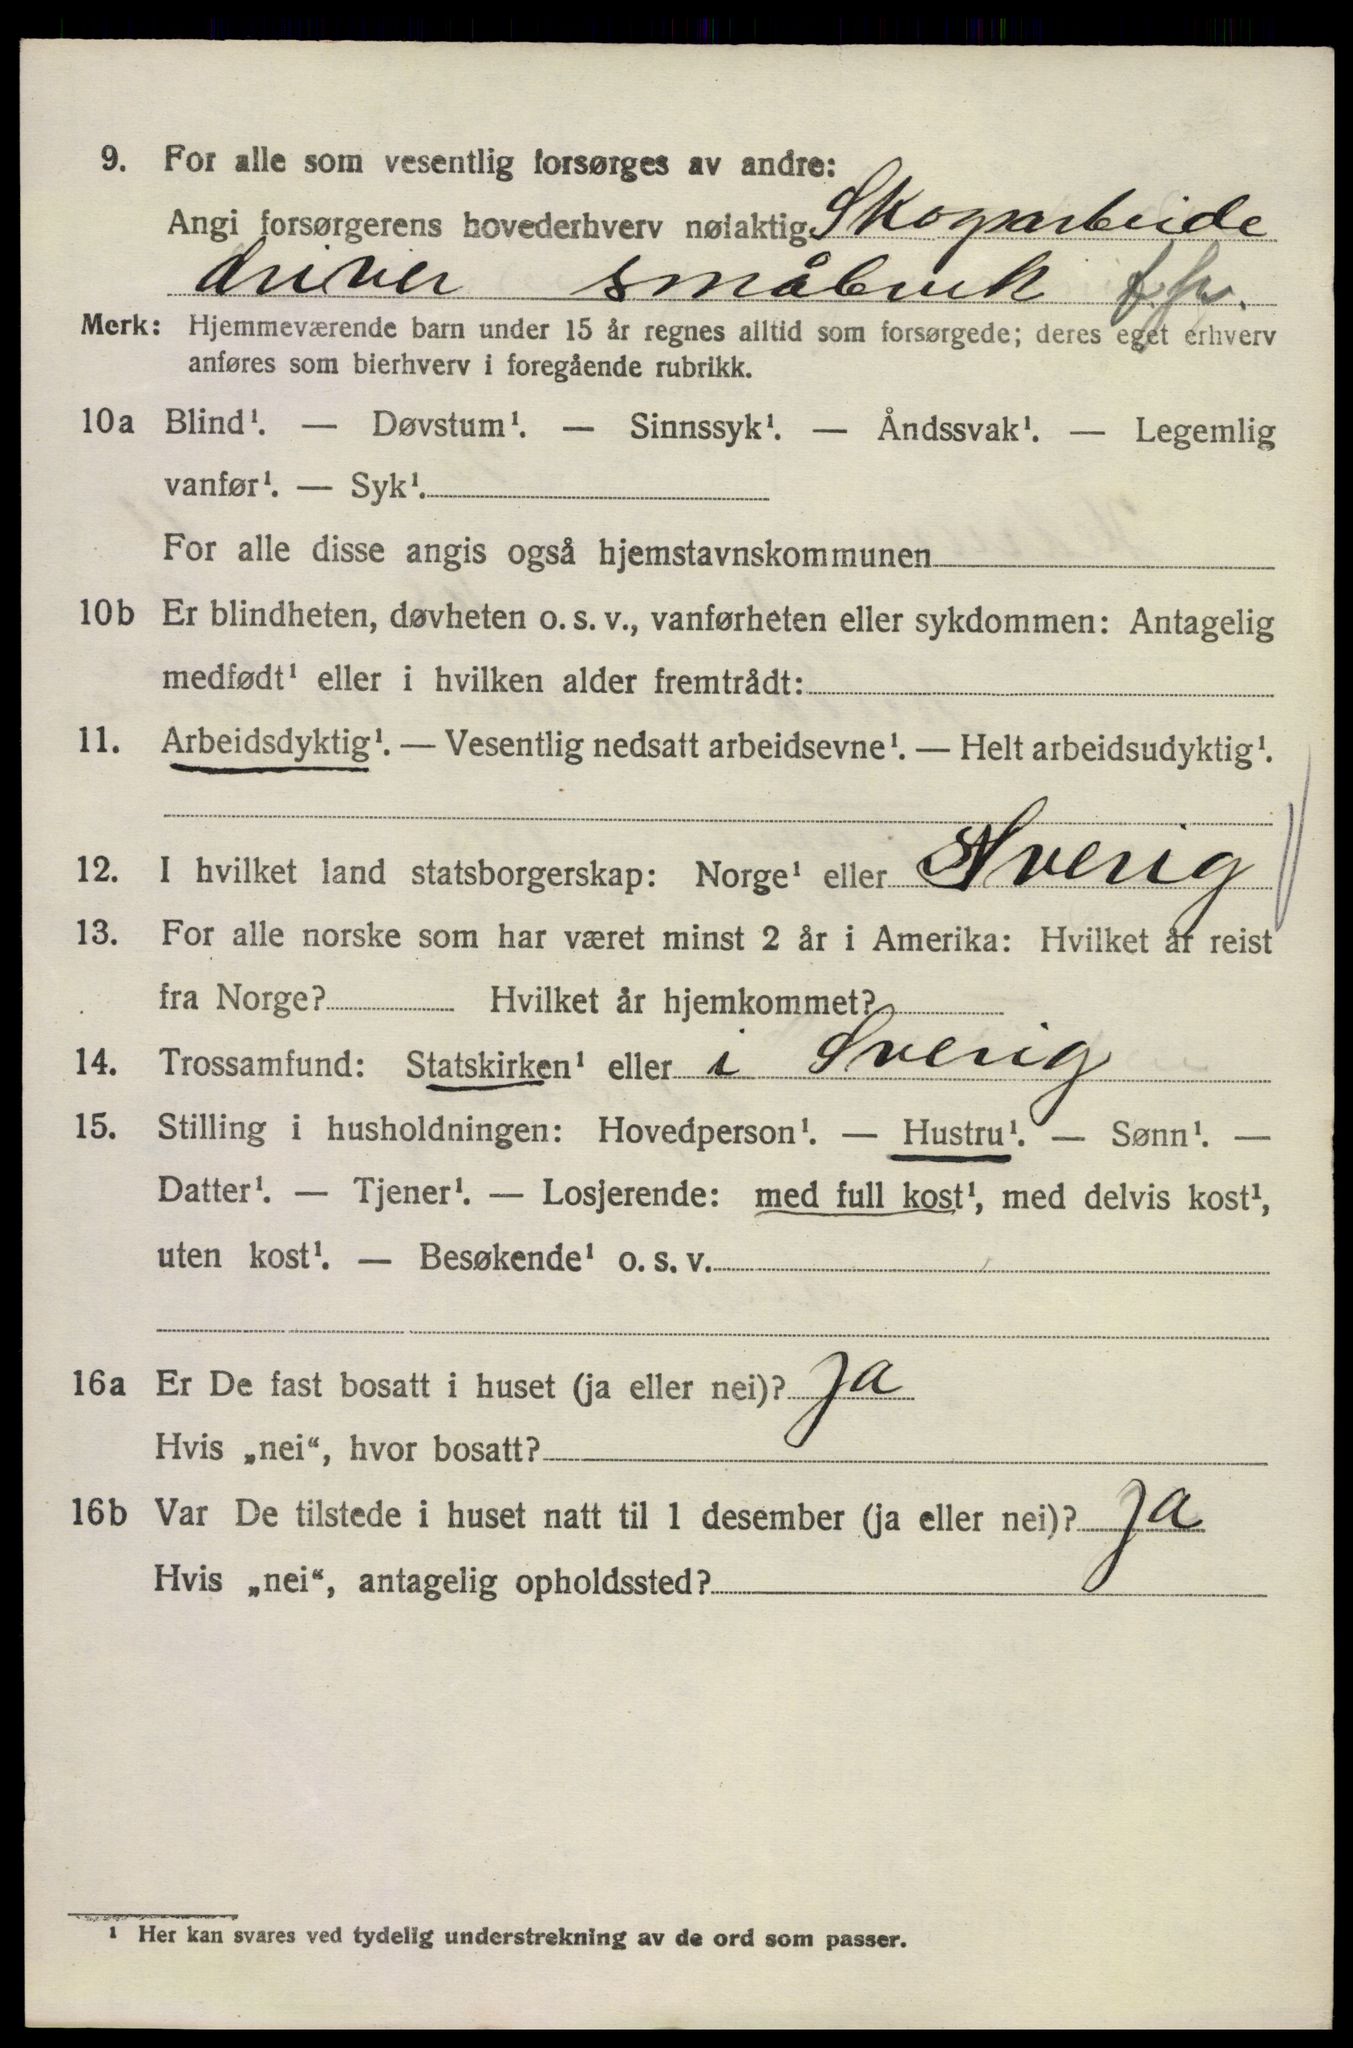 9. For alle som vesentlig forsørges av andre:
Angi forsørgerens hovederhverv nøiaktig Skogarbeide
driver småbruk
Merk: Hjemmeværende barn under 15 år regnes alltid som forsørgede; deres eget erhverv
anføres som bierhverv i foregående rubrikk.
10a Blind¹. — Døvstum¹. — Sinnssyk¹. — Åndssvak¹. — Legemlig
vanfør¹. — Syk¹.
For alle disse angis også hjemstavnskommunen
10b Er blindheten, døvheten o. s. v., vanførheten eller sykdommen: Antagelig
medfødt¹ eller i hvilken alder fremtrådt:
11. Arbeidsdyktig¹. — Vesentlig nedsatt arbeidsevne¹. — Helt arbeidsudyktig¹.
12. I hvilket land statsborgerskap: Norge¹ eller Sverig
13. For alle norske som har været minst 2 år i Amerika: Hvilket år reist
fra Norge? Hvilket år hjemkommet?
14. Trossamfund: Statskirken¹ eller i Sverig
15. Stilling i husholdningen: Hovedperson¹. — Hustru¹. — Sønn¹. —
Datter¹. — Tjener¹. — Losjerende: med full kost¹, med delvis kost¹,
uten kost¹. — Besøkende¹ o. s. v.
16a Er De fast bosatt i huset (ja eller nei)? Ja
Hvis „nei“, hvor bosatt?
16b Var De tilstede i huset natt til 1 desember (ja eller nei)? Ja
Hvis „nei“, antagelig opholdssted?
¹ Her kan svares ved tydelig understrekning av de ord som passer.